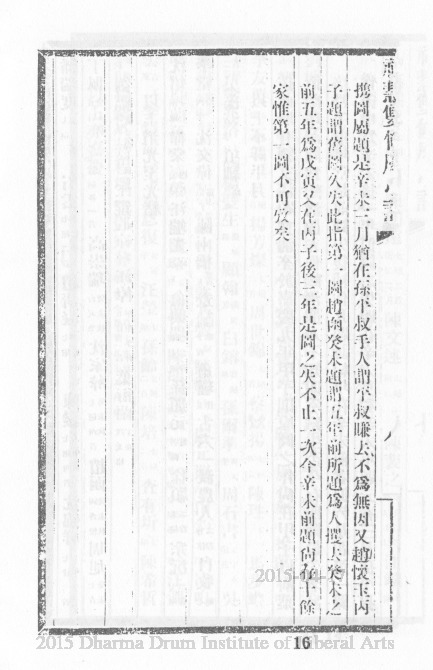 攜圖屬題是辛未三月猶在孫平叔手人謂平叔賺去不爲無因又趙懷玉丙
子題謂舊圖久失此指第一圖趙函癸未題謂五年前所題爲人攫去癸未之
前五年爲戊寅又在丙子後三年是圖之失不止一次今辛未前題尚存十餘
家惟第一圖不可攷矣
2015 Dharma Drum Institute of Liberal Arts
16